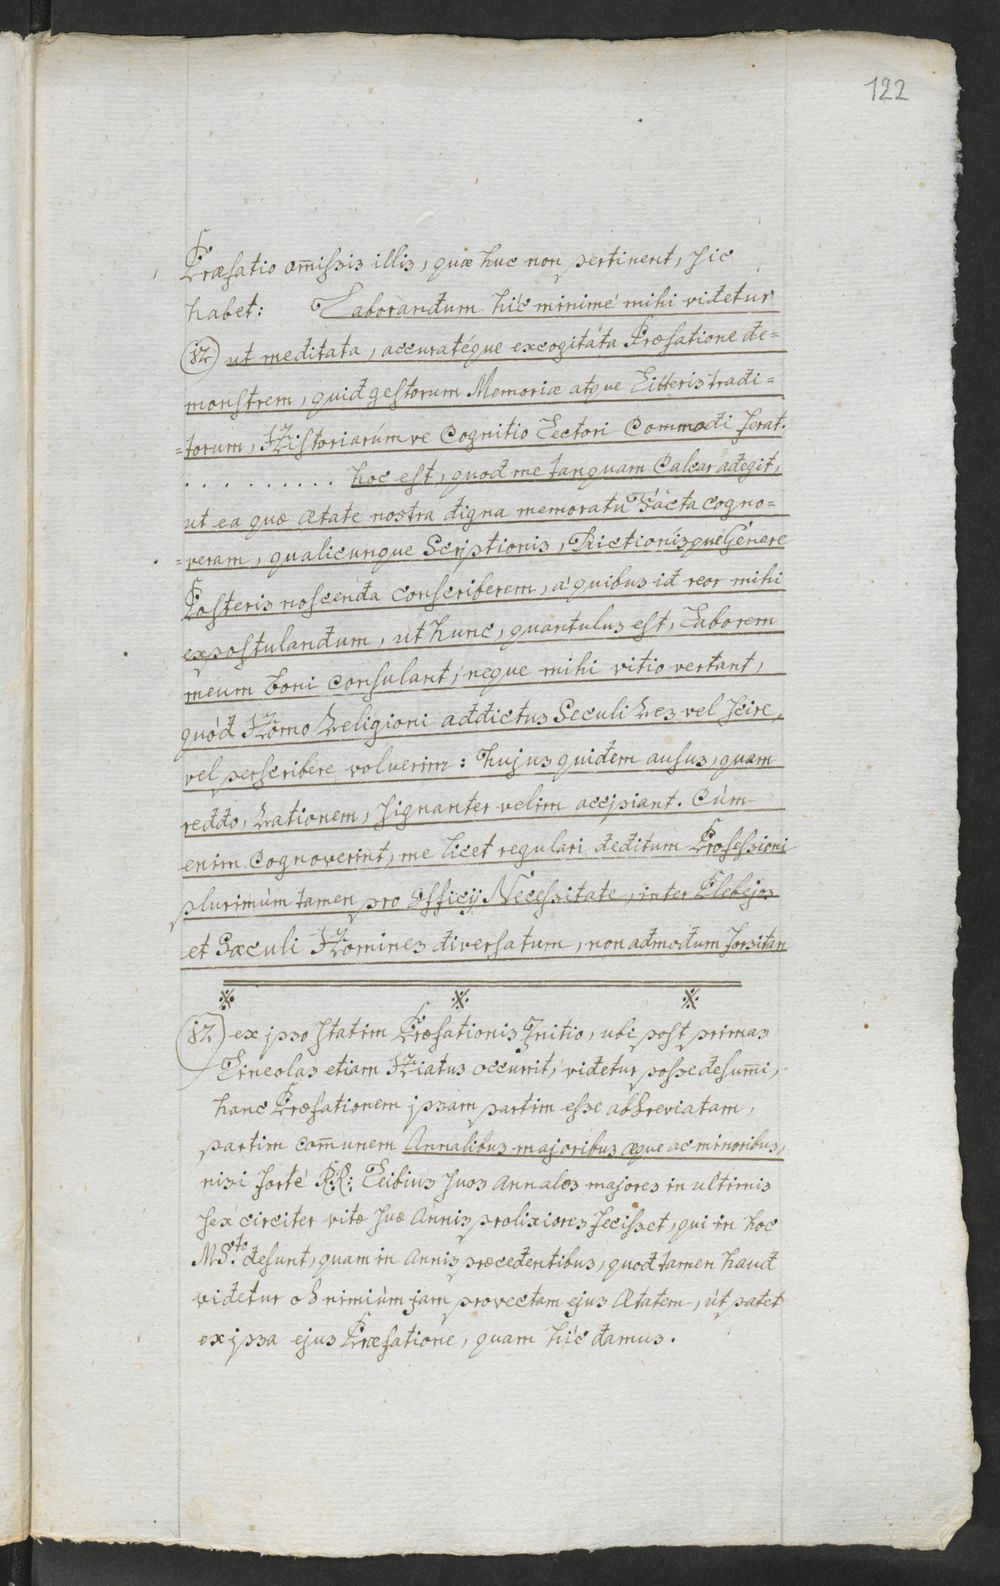 122
Præfatio om̄issis illis, quæ huc non pertinent, sic
habet: Laborandum hîc minimé mihi videtur
(82) ut meditata, accuratéque excogitáta Præfatione de=
monstrem, quid gestorum Memoriæ atque Litteris tradi=
=torum, Historiarúmve Cognitio Lectori Commodi ferat.
. . . . . . . . . . hoc est, quod me tanquam Calcar adegit,
ut ea quæ Ætate nostra digna memoratu Fácta cogno=
=veram, qualicunque Scriptionis, Dictionísqué Génere
Posteris noscenda Conscriberem, á quibus id reor mihi
expostulandum, ut hunc, quantulus est, Laborem
meum boni Consulant, neque mihi vitio vertant,
quód Homo Religioni addictus Seculi Res vel scire,
vel perscribere voluerim: hujus quidem ausus, quam
reddo, Rationem, signanter velim accipiant. Cúm
enim Cognoverint, me licet regulari deditum Professioni
plurimúm tamen pro Officij Necessitate, inter Plebejos
et Sæculi Homines diversatum, non admodum forsitan
(82) ex ipso statim Præfationis Initio, ubi post primas
Lineolas etiam Hiatus occurrit, videtur posse desum̄i,
hanc Præfationem ipsam partim esse abbreviatam,
partim com̄unem Annalibus majoribus æque ac minoribus,
nisi forté R:R: Leibius suos Annales majores in ultimis
sex circiter vitæ suæ Annis prolixiores fecisset, qui in hoc
MS.to desunt, quam in Annis præcedentibus, quod tamen haud
videtur ob nimiúm jam provectam ejus Ætatem, út patet
ex ipsa ejus Præfatione, quam hîc damus.